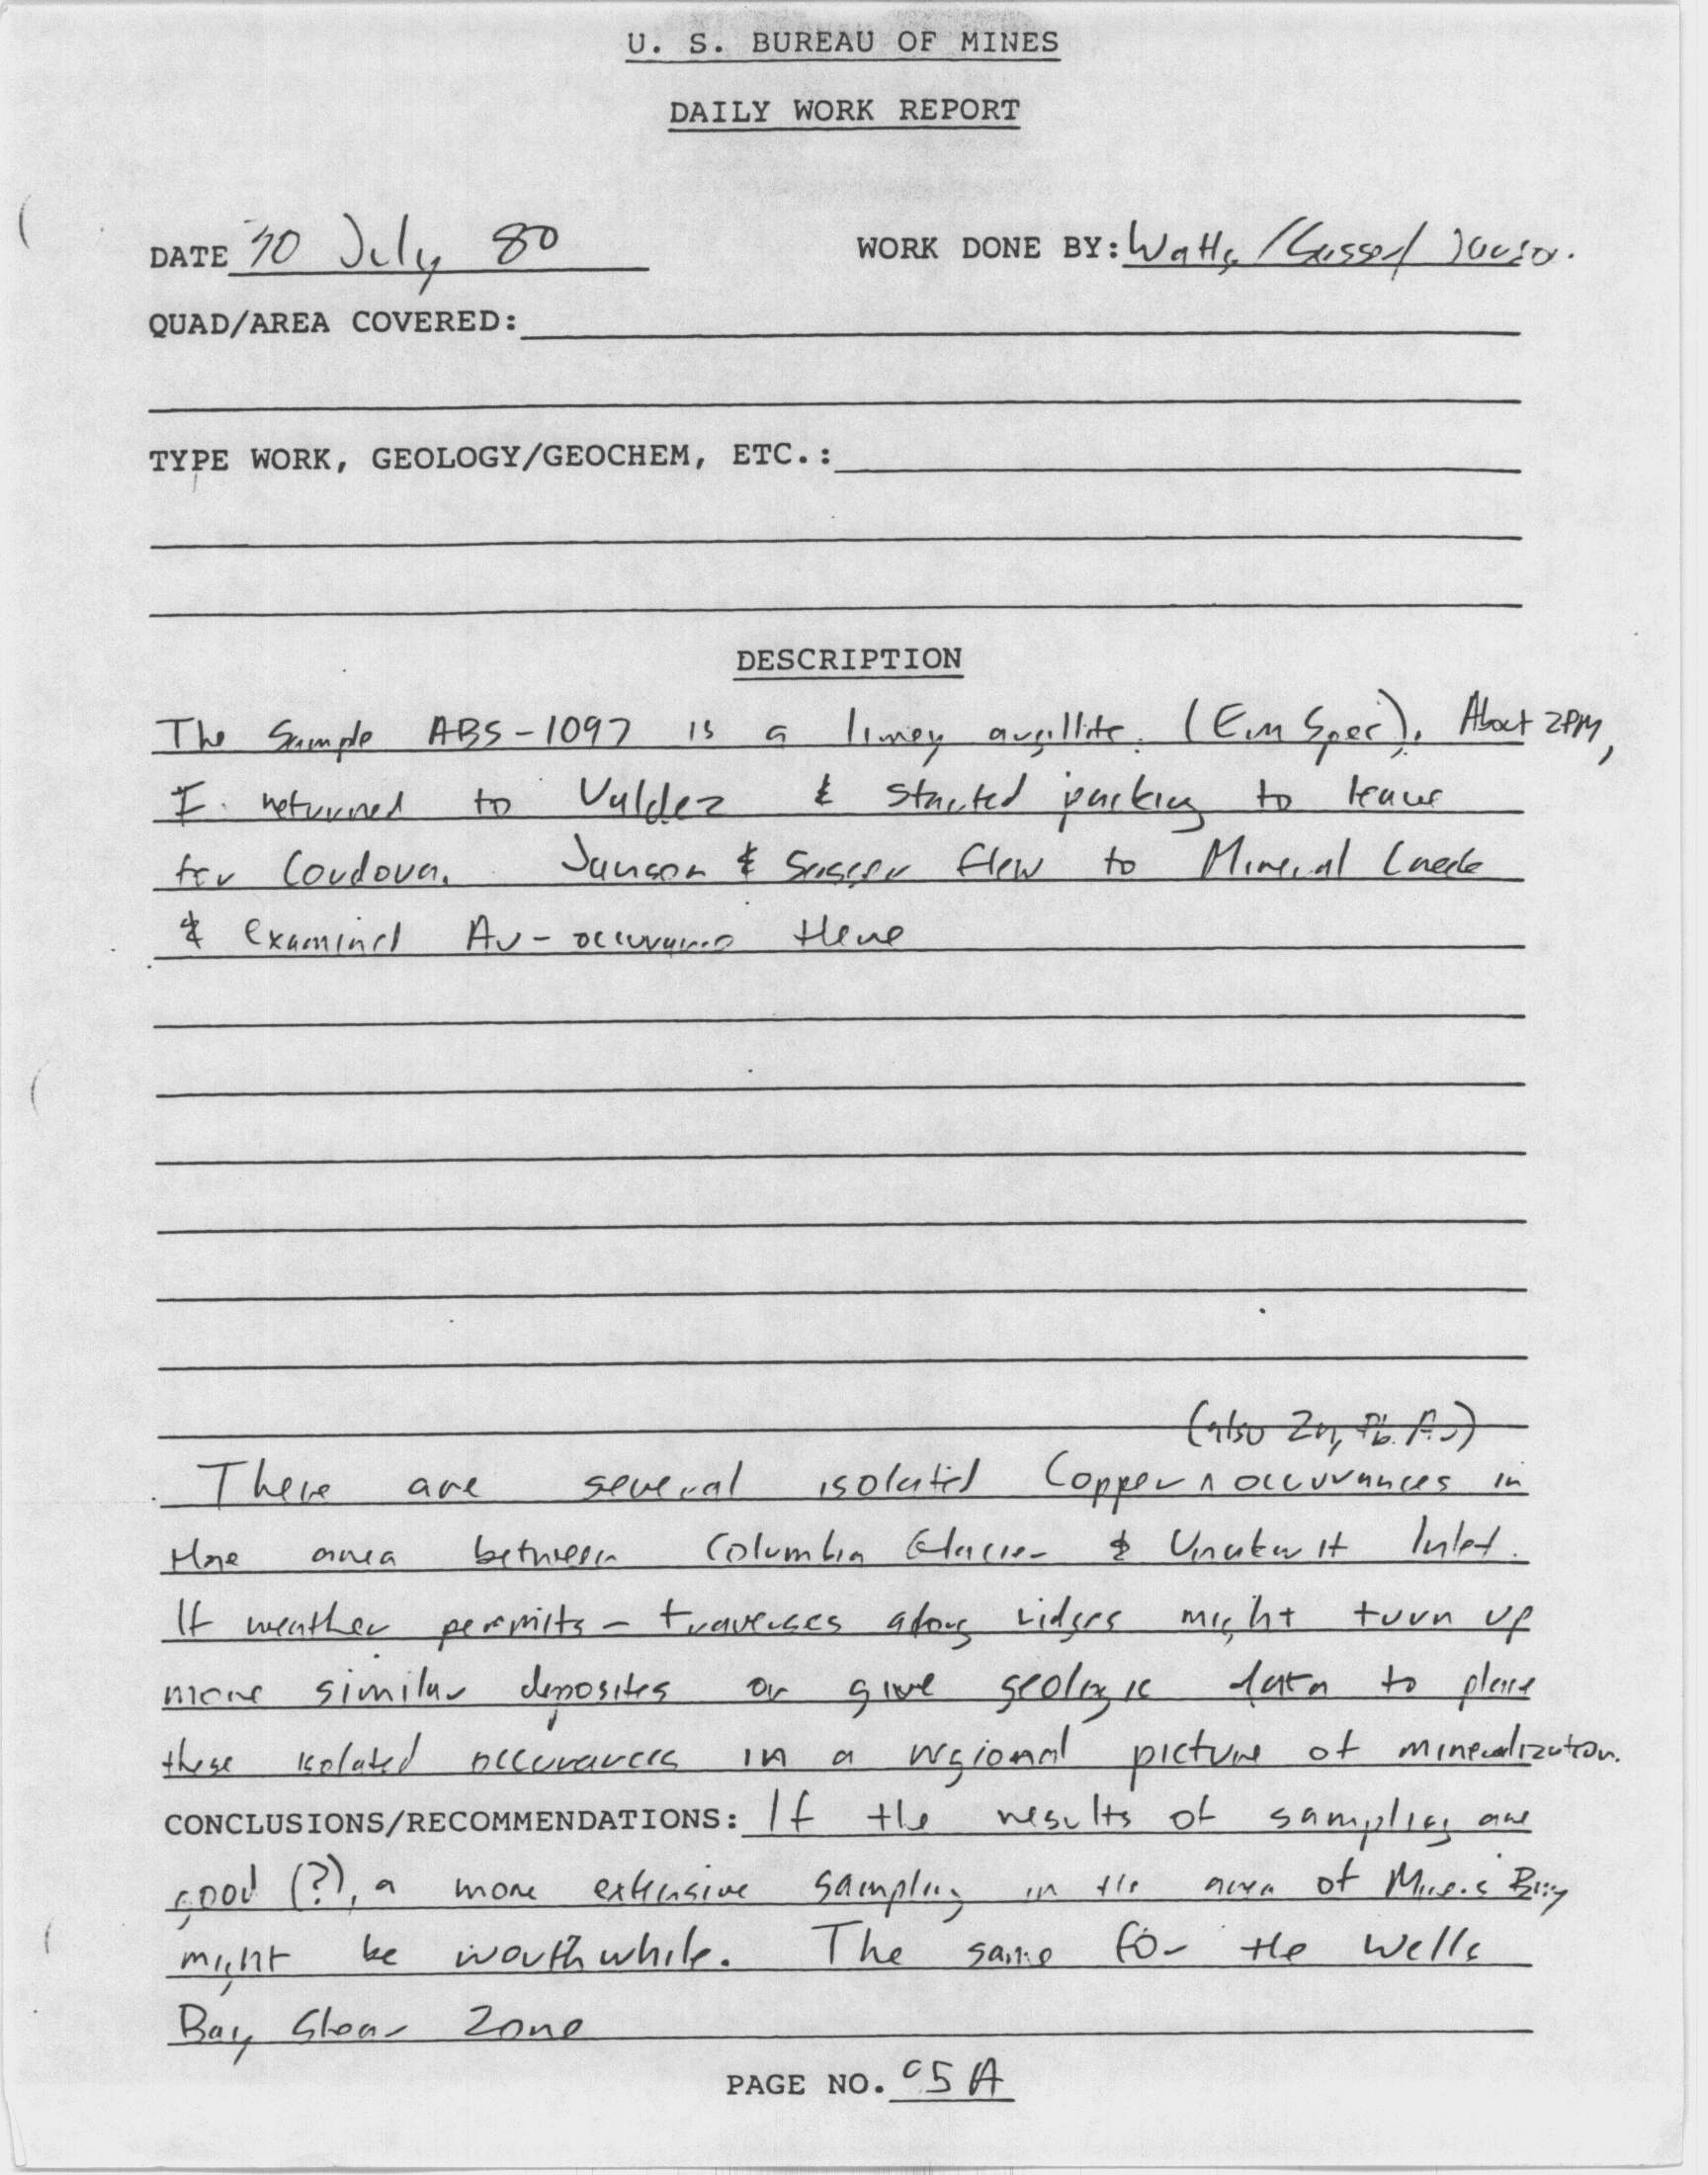 U. S. BUREAU OF MINES
DAILY WORK REPORT
DATE 30 July 80 WORK DONE BY: Watts /
QUAD/AREA COVERED:
TYPE WORK, GEOLOGY/GEOCHEM, ETC.:
DESCRIPTION
The Sample ABS-1097 is a limey argillite. (Em Spec). About 2PM,
I returned to Valdez & started packing to leave
for Cordova. Janson & flew to Mineral Creek
& examined Au - there
(also Zn, Pb. Au)
There are several isolated Copper ^ occurances in
the area between Columbia Glacier & Unakwit Inlet.
If weather permits - traverses along ridges might turn up
more similar deposites or give geologic data to place
these isolated occurances in a regional picture of mineralization.
CONCLUSIONS/RECOMMENDATIONS: If the results of sampling are
good (?), a more extensive sampling in the area of Bay
might be worthwhile. The same for the Wells
Bay Shear Zone
PAGE NO. 5A